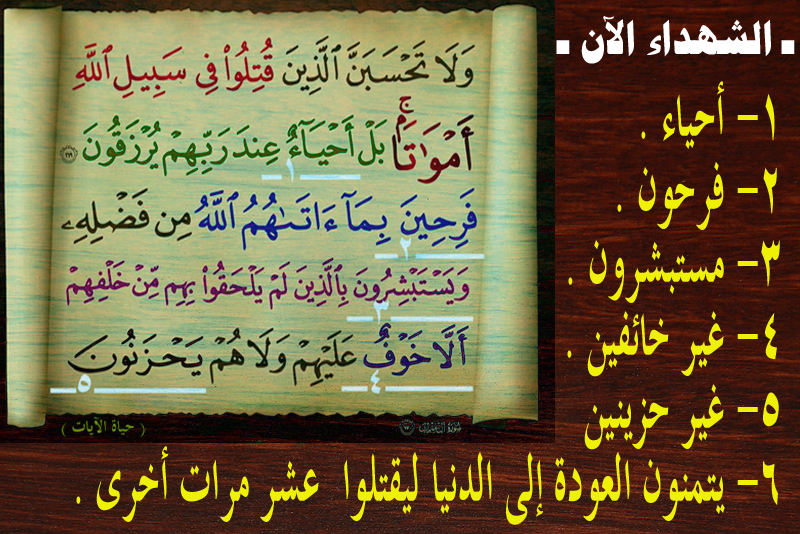 ▪ الشهداء الآن ▪
وَلَا تَحْسَبَنَّ ٱلَّذِينَ قُتِلُوا۟ فِى سَبِيلِ ٱللَّهِ
أَمْوَٰتًۢا ۚ بَلْ أَحْيَآءٌ عِندَ رَبِّهِمْ يُرْزَقُونَ ١٦٩
١
فَرِحِينَ بِمَآ ءَاتَىٰهُمُ ٱللَّهُ مِن فَضْلِهِۦ
٢
وَيَسْتَبْشِرُونَ بِٱلَّذِينَ لَمْ يَلْحَقُوا۟ بِهِم مِّنْ خَلْفِهِمْ
٣
أَلَّا خَوْفٌ عَلَيْهِمْ وَلَا هُمْ يَحْزَنُونَ
٤ ٥
( حياة الآيات )
١- أحياء .
٢- فرحون .
٣- مستبشرون .
٤- غير خائفين .
٥- غير حزينين
٦- يتمنون العودة إلى الدنيا ليقتلوا عشر مرات أخرى .